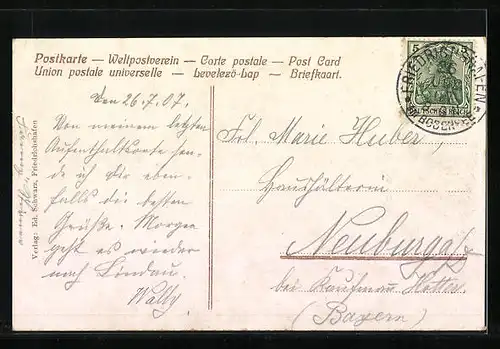 Postkarte — Weltpostverein — Carte postale — Post Card
Union postale universelle — Levelező-Lap — Briefkaart.
Den 26.7.07.
Von meinem letzten
Aufenthaltsorte sen-
de ich dir eben-
falls die besten
Grüße. Morgen
geht es wieder
nach Lindau.
Wally
Verlag: Ed. Schwarz, Friedrichshafen
5
FRIEDRICHSHAFEN
Frl. Marie Huber,
Haushälterin
Neuburg a/
bei Kaufmann
(Bayern)